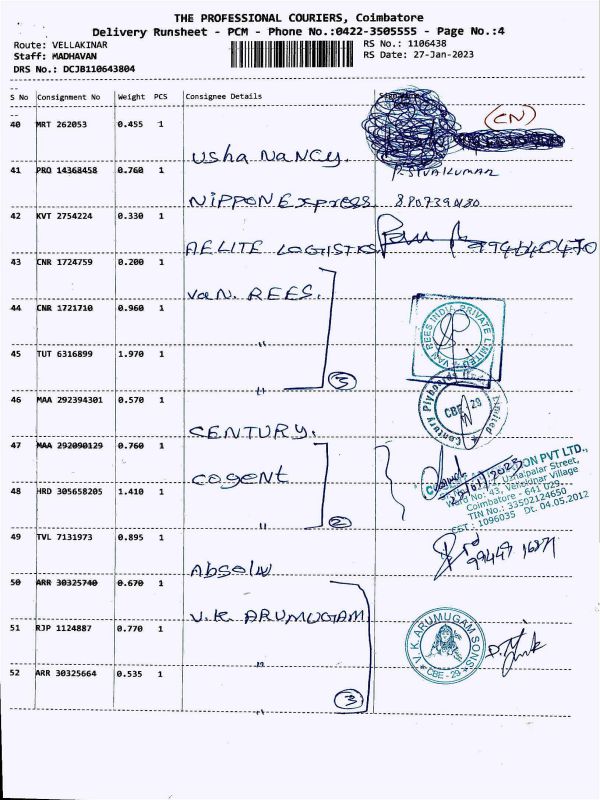 THE PROFESSIONAL COURIERS, Coimbatore
Delivery Runsheet - PCM - Phone No.:0422-3505555 - Page No.:4
Route: VELLAKINAR RS No.: 1106438
Staff: MADHAVAN RS Date: 27-Jan-2023
DRS No.: DCJB110643804
S No Consignment No Weight PCS Consignee Details
40 MRT 262053 0.455 1
(CN)
Usha Nancy.
41 PRQ 14368458 0.760 1
P. SIVAKUMAR
NIPPON Express
42 KVT 2754224 0.330 1
AELITE LOGISTICS
43 CNR 1724759 0.200 1
VaN. REES.
44 CNR 1721710 0.960 1
"
VAN REES INDIA PRIVATE LIMITED
45 TUT 6316899 1.970 1
" 3
46 MAA 292394301 0.570 1
Century Plyboards Limited
CBE 29
CENTURY.
47 MAA 292090129 0.760 1
cogent
ON PVT LTD.,
48 HRD 305658205 1.410 1
Ward No: 43, Vellakinar Village
Coimbatore - 641 029.
TIN No.: 33592124650
CST : 1096035 Dt. 04.05.2012
" 2
49 TVL 7131973 0.895 1
50 ARR 30325740 0.670 1
V.K. ARUMUGAM
51 RJP 1124887 0.770 1
V. K. ARUMUGAM SONS
CBE - 29
"
52 ARR 30325664 0.535 1
" 3